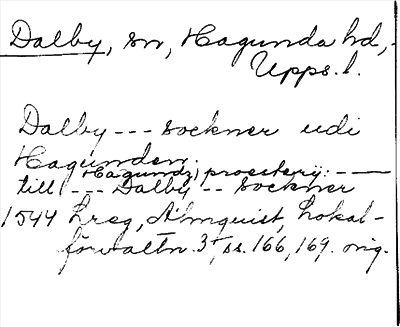 Dalby, sn, Hagunda hd,
Upps. l.
Dalby --- sockner udi
Hagunden;
Hagundz prosterij: ---
till --- Dalby -- sockner
1544 Hreg, Almquist, Lokal-
förvaltn. 3, ss. 166, 169. orig.